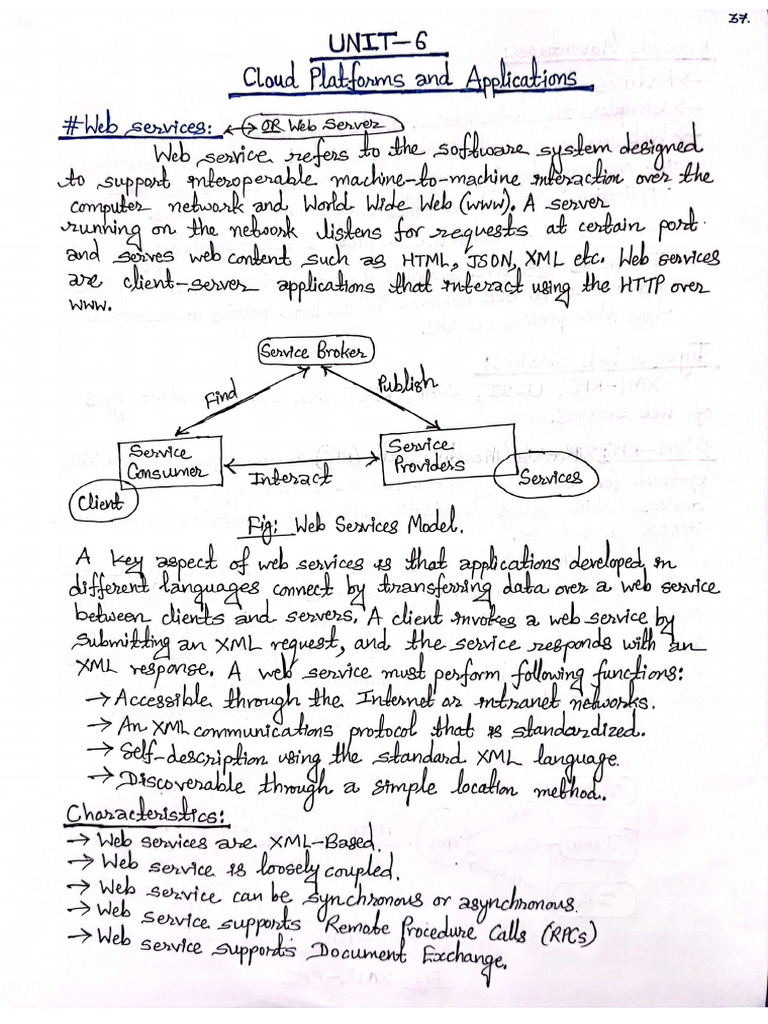 37.
UNIT-6
Cloud Platforms and Applications
# Web services: ↔ OR Web Server
Web service refers to the software system designed
to support interoperable machine-to-machine interaction over the
computer network and World Wide Web (www). A server
running on the network listens for requests at certain port
and serves web content such as HTML, JSON, XML etc. Web services
are client-server applications that interact using the HTTP over
www.
Service Broker
Find
Publish
Service
Consumer
Service
Providers
Interact
Client
Services
Fig: Web Services Model.
A key aspect of web services is that applications developed in
different languages connect by transferring data over a web service
between clients and servers. A client invokes a web service by
submitting an XML request, and the service responds with an
XML response. A web service must perform following functions:
→ Accessible through the Internet or intranet networks.
→ An XML communications protocol that is standardized.
→ Self-description using the standard XML language.
→ Discoverable through a simple location method.
Characteristics:
→ Web services are XML-Based.
→ Web service is loosely coupled.
→ Web service can be synchronous or asynchronous.
→ Web service supports Remote Procedure Calls (RPCs)
→ Web service supports Document Exchange.